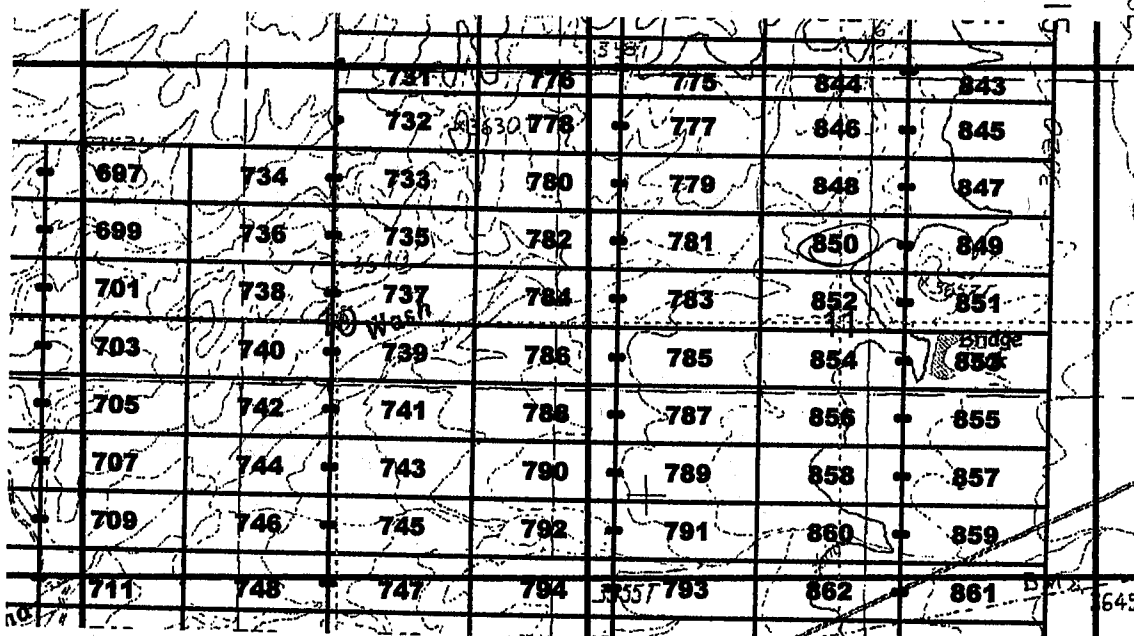 731 776 775 844 843
732 3630 778 777 846 845
697 734 733 780 779 848 847
699 736 735 782 781 850 849
701 738 737 784 783 852 851
10 Wash 11
703 740 739 786 785 854 Bridge 853
705 742 741 788 787 856 855
707 744 743 790 789 858 857
709 746 745 792 791 860 859
711 748 747 794 3555T 793 862 861 3645